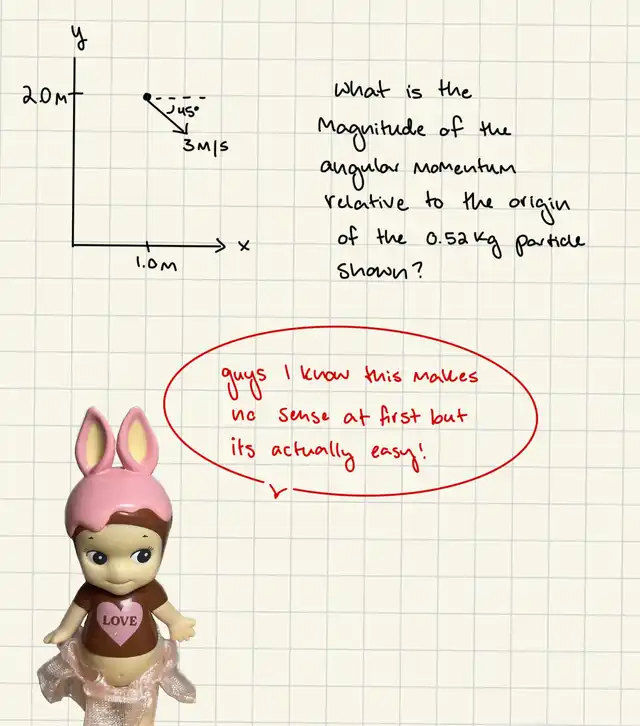 y
2.0 M
45°
3 M/S
x
1.0 M
What is the
Magnitude of the
angular Momentum
relative to the origin
of the 0.52 kg particle
shown?
guys I know this makes
no sense at first but
its actually easy!
LOVE